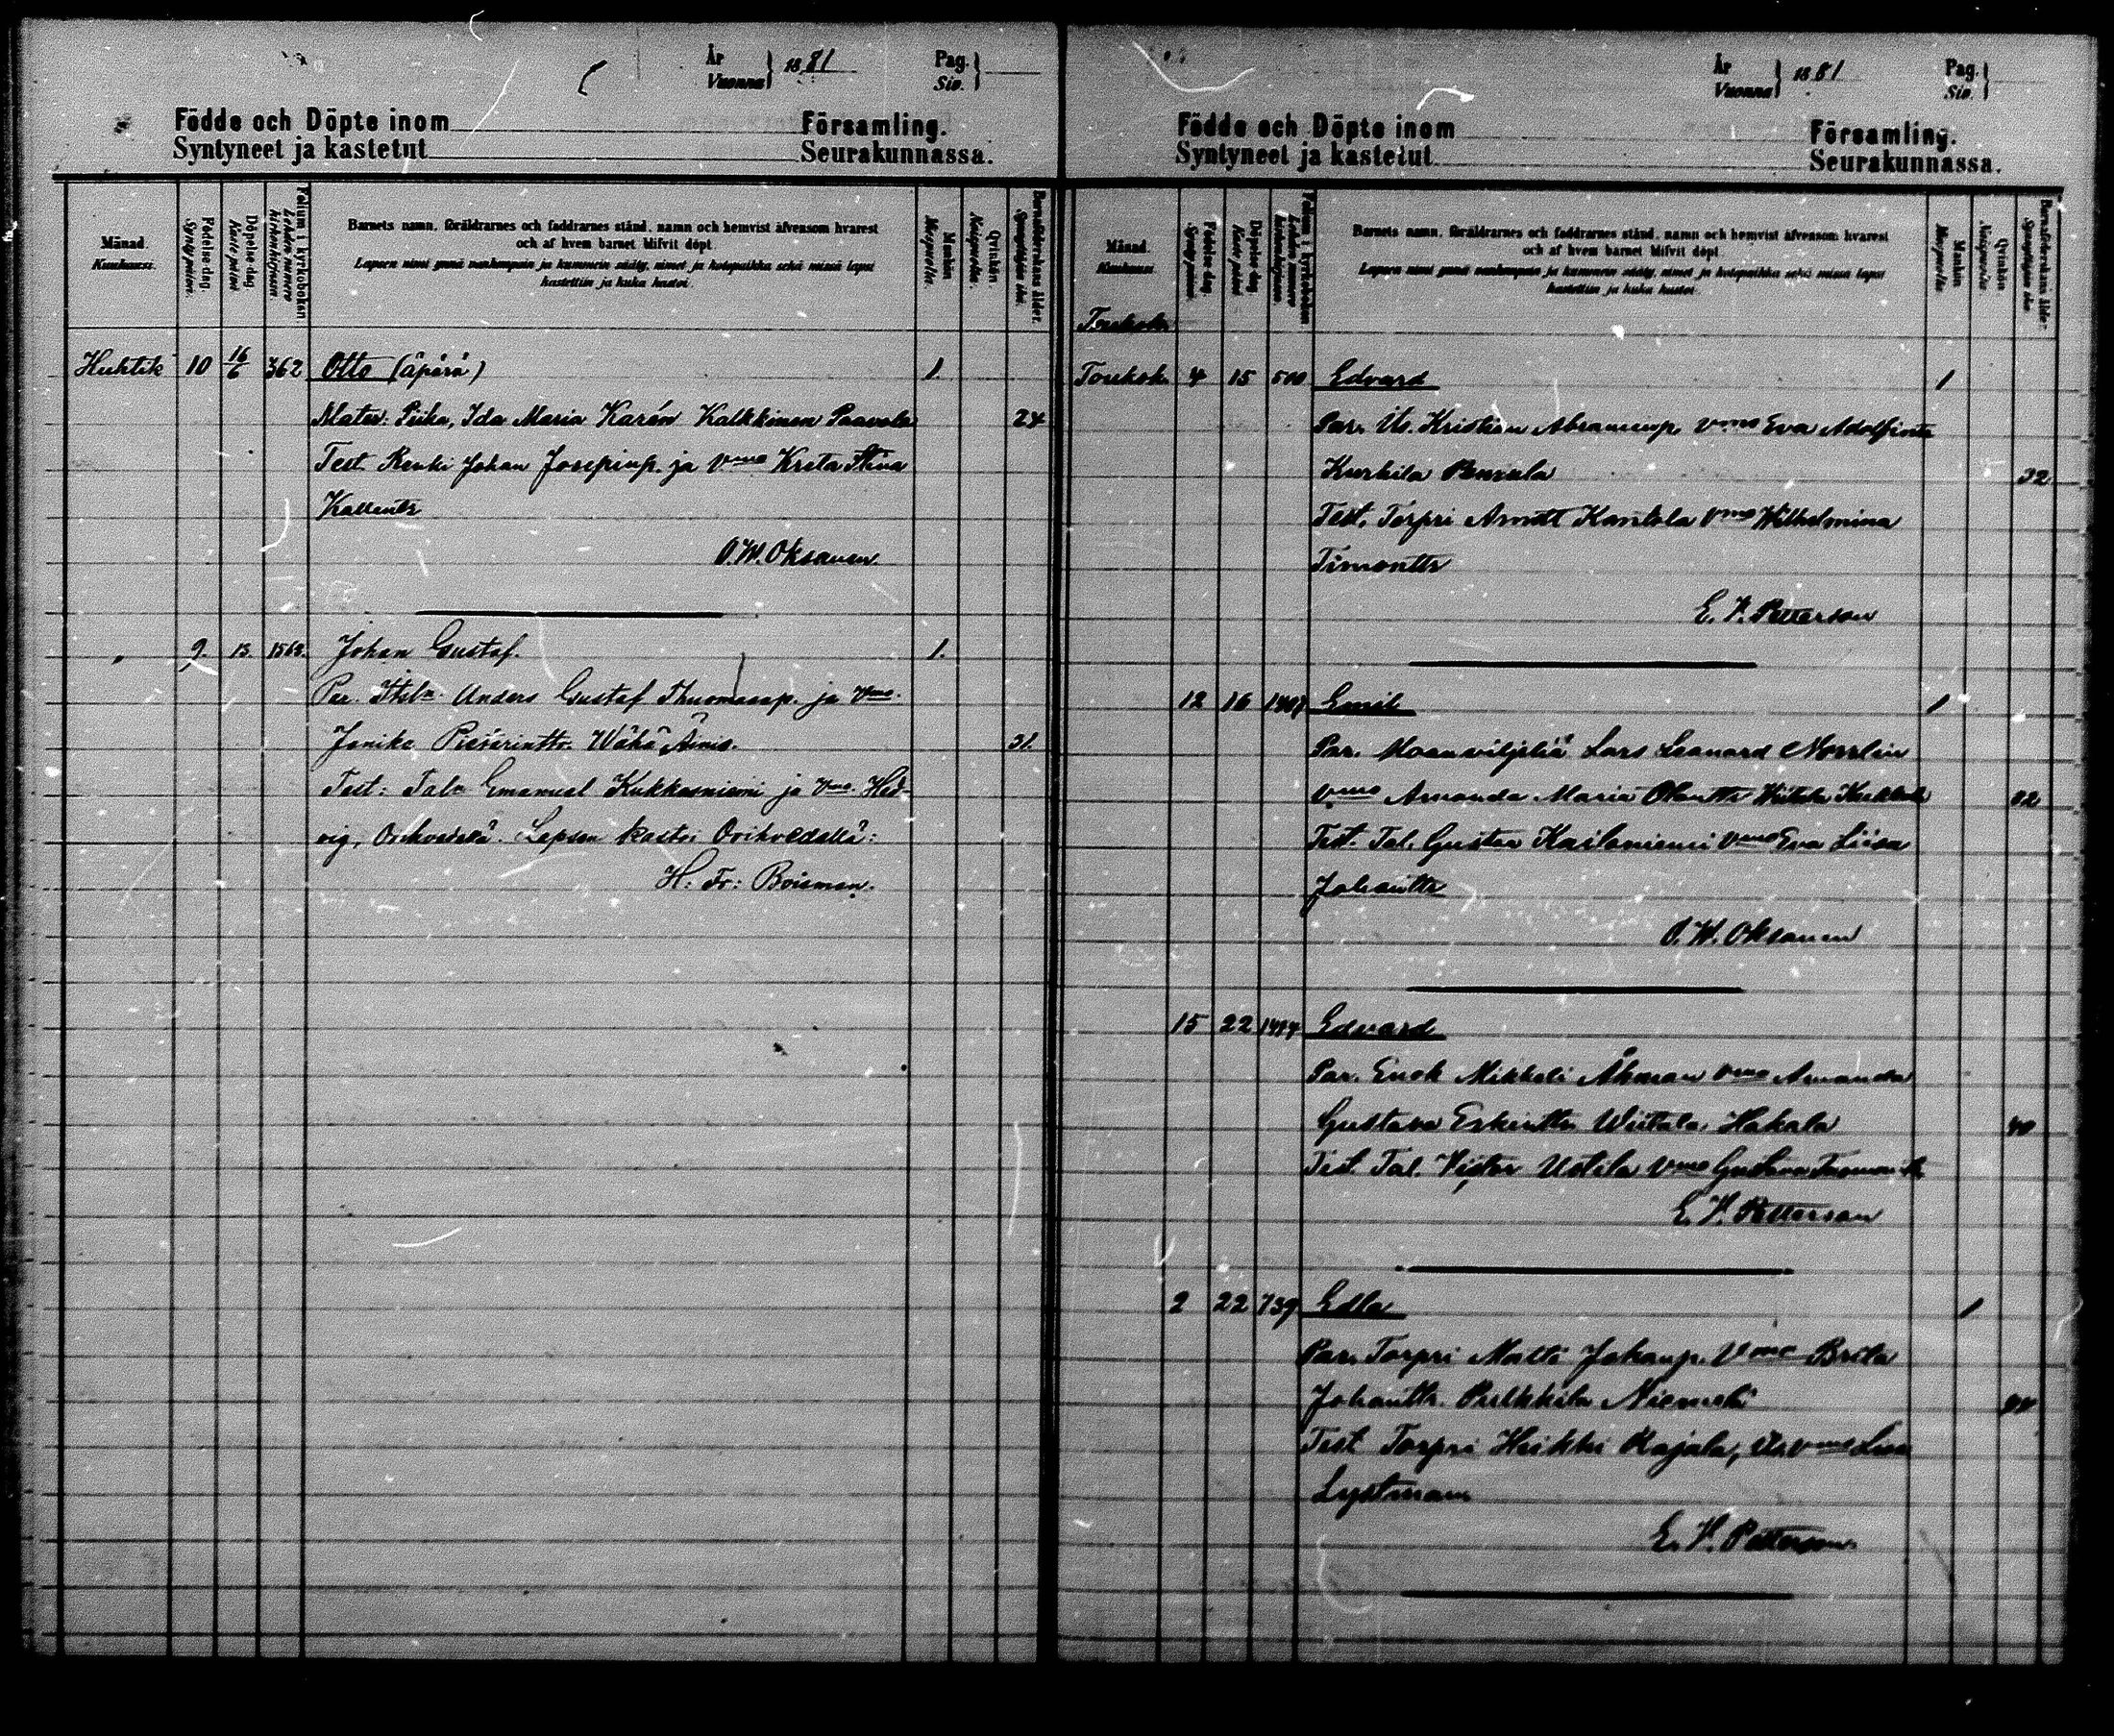 År
Vuonna } 1881
Pag.
Siv. }
Födde och Döpte inom Församling.
Syntyneet ja kastetut Seurakunnassa.
Månad.
Kuukausi.
Födelse-dag.
Syntypäivä.
Döpelse-dag.
Kaste päivä
Folium i kyrkoboken.
Lehden numero kirkonkirjassa
Barnets namn, föräldrarnes och faddrarnes stånd, namn och hemvist äfvensom hvarest
och af hvem barnet blifvit döpt.
Lapsen nimi ynnä vanhempain ja kummein sääty, nimet ja kotopaikka sekä missä lapsi
kastettiin ja kuka kastoi.
Mankön
Miespuolia.
Qvinkön.
Naispuolia.
Barnaföderskans ålder.
Synnyttäjän ikä.
Huhtik 10 16/6 362 Otto (äpärä) 1.
Mater: Piika, Ida Maria Karén Kalkkinen Paavola 24
Test. Renki Johan Josepinp. ja Vmo Kreta Stina
Kallentr
O. W. Oksanen.
" 9. 13. 1568. Johan Gustaf. 1.
Par. Anders Gustaf Thuomaanp. ja Vmo.
Jonika Wähä Äiniö. 31.
Test: Tal: Emanuel Kukkasniemi ja Vmo. Hed-
vig, Lapsen kastoi Orihvedellä:
H: Fr: Boisman.
År
Vuonna } 1881
Pag.
Siv. }
Födde och Döpte inom Församling.
Syntyneet ja kastetut Seurakunnassa.
Månad.
Kuukausi.
Födelse-dag.
Syntypäivä.
Döpelse-dag.
Kaste päivä
Folium i kyrkoboken
Lehden numero kirkonkirjassa
Barnets namn, föräldrarnes och faddrarnes stånd, namn och hemvist äfvensom hvarest
och af hvem barnet blifvit döpt.
Lapsen nimi ynnä vanhempain ja kummein sääty, nimet ja kotopaikka sekä missä lapsi
kastettiin ja kuka kastoi.
Mankön
Miespuolia.
Qvinkön.
Naispuolia.
Barnaföderskans ålder.
Synnyttäjän ikä
Toukok.
Toukok. 4 15 500 Edvard 1
Par. Its. Kristian Abraminp. Vmo Eva Adolfintr
Kurkila 32
Test. Torpri Anutt Kantola Vmo Wilhelmina
Timontr
E. V. Petterson
12 16 Emil 1
Par. Maanviljeliä Lars Leonard Norrlin
Vmo Amanda Maria 32
Test. Tal. Gustaa Kailoniemi Vmo Eva Liisa
Johantr
O. W. Oksanen
15 22 Edvard
Par. Enok Mikkeli Åhman Vmo Amanda
Gustava Eskintr. Wiitala, Hakala 40
Test. Tal. Victor Uotila Vmo Gustava
E. V. Petterson
2 22 739 Edla 1
Par. Torpri Matti Johanp. Vmo Brita
Johantr. Pulkkila 44
Test Torpri Heikki Rajala, Its Vmo Liisa
Lystman
E. V. Petterson.